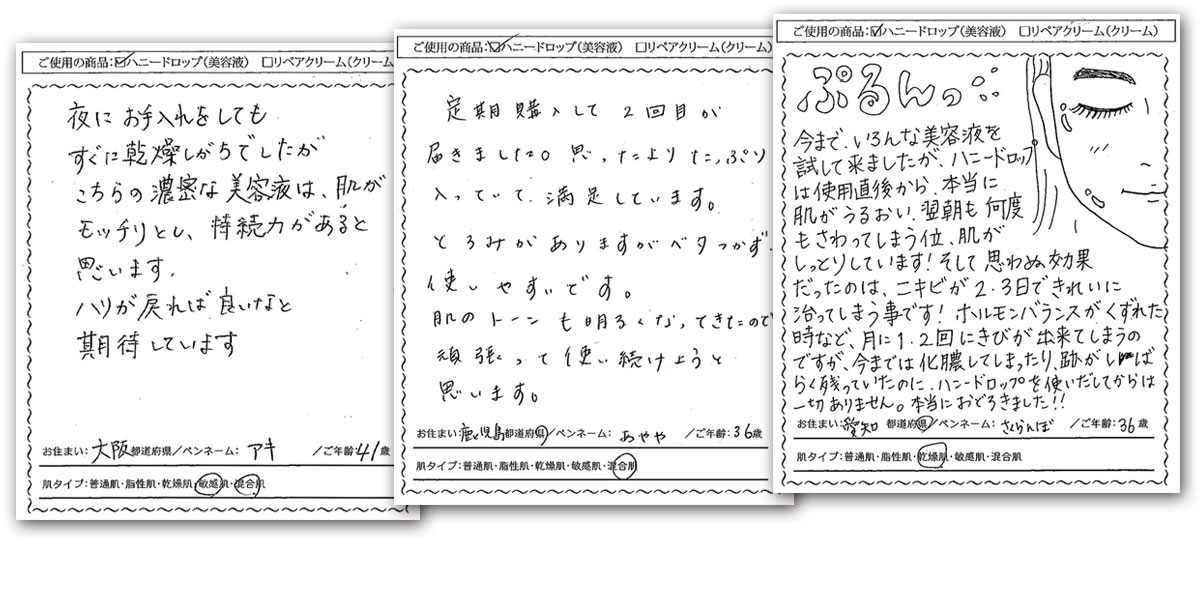 ご使用の商品:☑ハニードロップ(美容液) □リペアクリーム(クリーム
夜に お手入れをしても
すぐに乾燥しがちでしたが
こちらの濃密な美容液は、肌が
モッチリとし、持続力があると
思います。
ハリが戻れば良いなと
期待しています
お住まい:大阪都道府県/ペンネーム: アキ /ご年齢:41歳
肌タイプ:普通肌・脂性肌・乾燥肌・敏感肌・混合肌
ご使用の商品:☑ハニードロップ(美容液) □リペアクリーム(クリーム
定期購入して 2回目が
届きました。思ったより たっぷり
入っていて、満足しています。
とろみがありますがベタつかず、
使いやすいです。
肌のトーンも明るくなってきたので
頑張って使い続けようと
思います。
お住まい:鹿児島都道府県/ペンネーム: あやや /ご年齢:36歳
肌タイプ:普通肌・脂性肌・乾燥肌・敏感肌・混合肌
ご使用の商品:☑ハニードロップ(美容液) □リペアクリーム(クリーム)
ぷるんっ
今まで、いろんな美容液を
試して来ましたが、ハニードロップ
は使用直後から、本当に
肌がうるおい、翌朝も何度
もさわってしまう位、肌が
しっとりしています!そして思わぬ効果
だったのは、ニキビが2.3日できれいに
治ってしまう事です!ホルモンバランスがくずれた
時など、月に1.2回にきびが出来てしまうの
ですが、今までは化膿してしまったり、跡がしば
らく残っていたのに、ハニードロップを使いだしてからは
一切ありません。本当におどろきました!!
お住まい:愛知 都道府県/ペンネーム: さくらんぼ /ご年齢:36歳
肌タイプ:普通肌・脂性肌・乾燥肌・敏感肌・混合肌